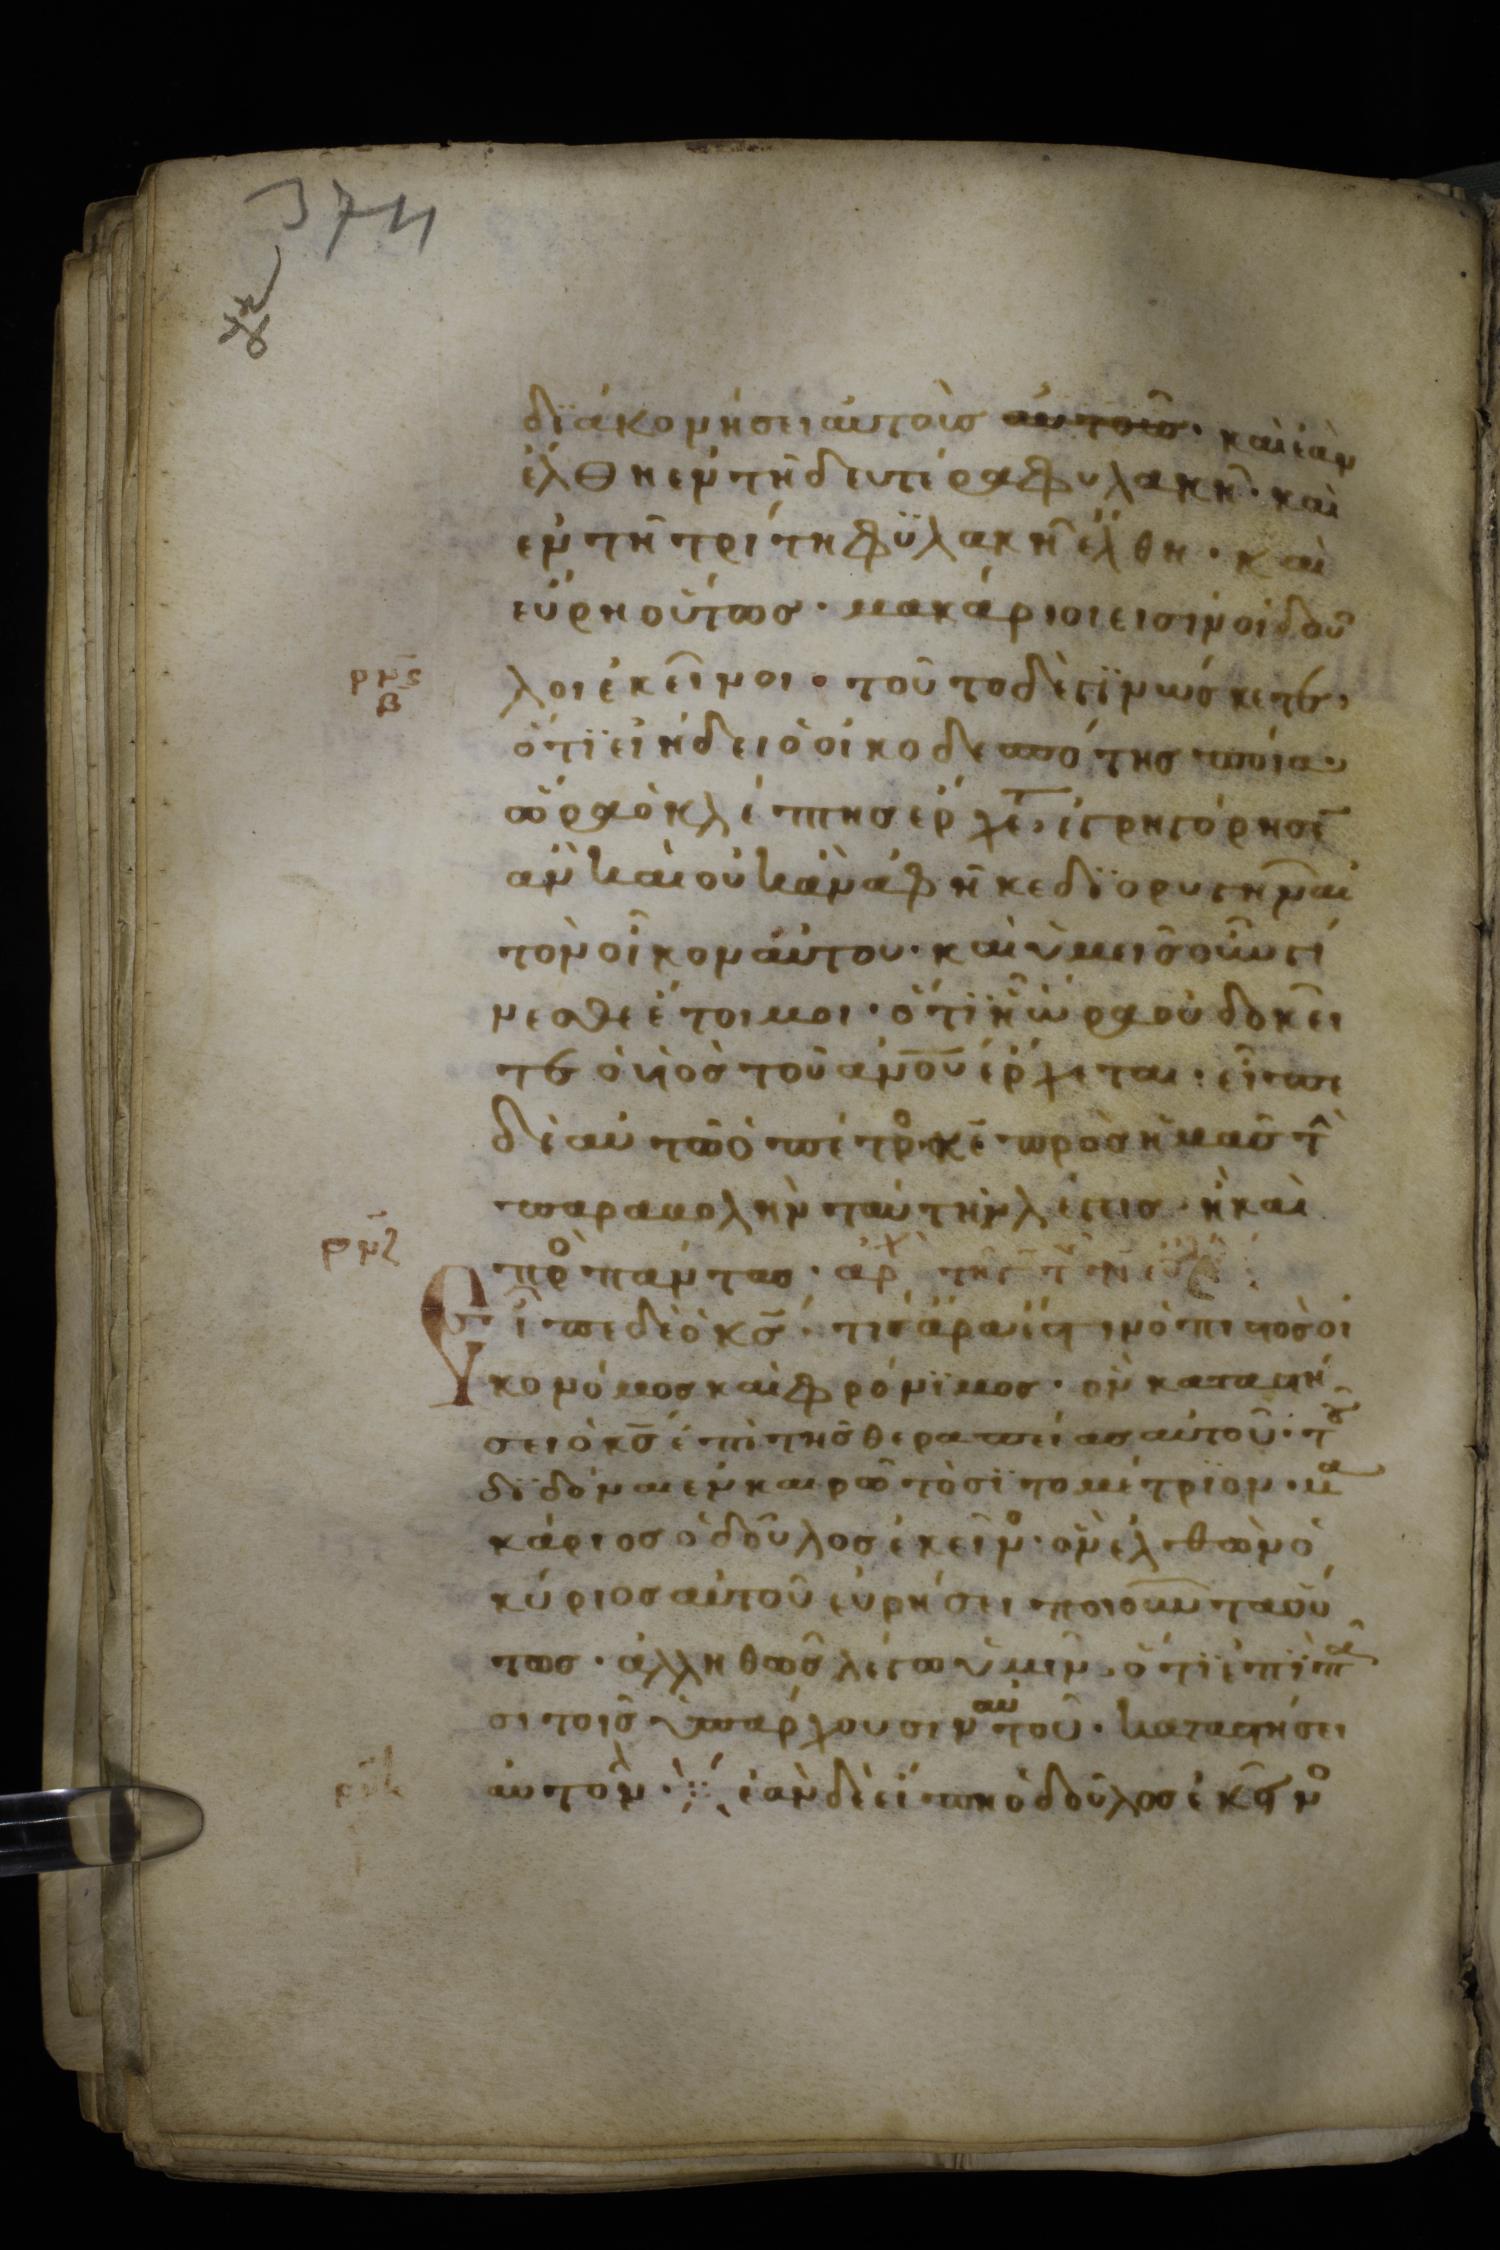 374
διακονήσει αυτοὶσ αυτοισ· καὶ ἐὰν
ἔλθη εν τῆ δευτέρα φυλακῆ· και
εν τῆ τρίτη φϋλακῆ ἔλθη· και
εὕρη οὕτωσ· μακάριοι εισὶν οἱ δοῦ
ρμς
β
λοι ἐκεῖνοι· τοῦτο δὲ γϊνώσκετε,
ὅτϊ εἰ ήδει ὁ οἰκοδεσπότησ ποία
ὥρα ὁ κλέπτησ έρχετ, ἐγρηγόρησε
ἀν καὶ οὐκ ὰν ἀφῆκε δϊορυγηναι
τὸν οἶκον ἀυτου· καὶ ὑμεισ οὖν γί
νεσθε ἕτοιμοι· ὅτϊ ῆ ὥρα οὐ δοκεῖ
τε ὁ ὑιὸσ τοῦ ανου ἔρχεται· εἶπε
δὲ αυτῶ ὁ πέτρο· κε πρὸσ ἡμασ τὴ
παραβολὴν ταύτην λέγεισ· ἢ καὶ
ρμζ
προ πάντασ· αρχ
Εἶπε δὲ ὁ κσ· τίσ ἄρα ἐστιν ὁ πιστὸσ οἰ
κονόμοσ καὶ φρόνϊμοσ· ὃν καταστή
σει ὁ κσ ἐπὶ τησ θεραπείασ αὐτοῦ· του
δϊδόναι εν καιρῶ τὸ σϊτομέτρϊον· μα
κάριοσ ὁ δοῦλοσ ἐκεῖνο· ὃν ἐλθὼν ὁ
κύριοσ αὐτοῦ εὑρήσει ποιουντα ού
τωσ· ἀλληθῶσ λέγω ὑμιν, ὅτϊ ἐπὶ πᾶ
σι τοισ ὑπάρχουσιν αὐτοῦ· καταστήσει
αυτον· ἐὰν δὲ εἴπη ὁ δοῦλοσ ἐκεῖνο